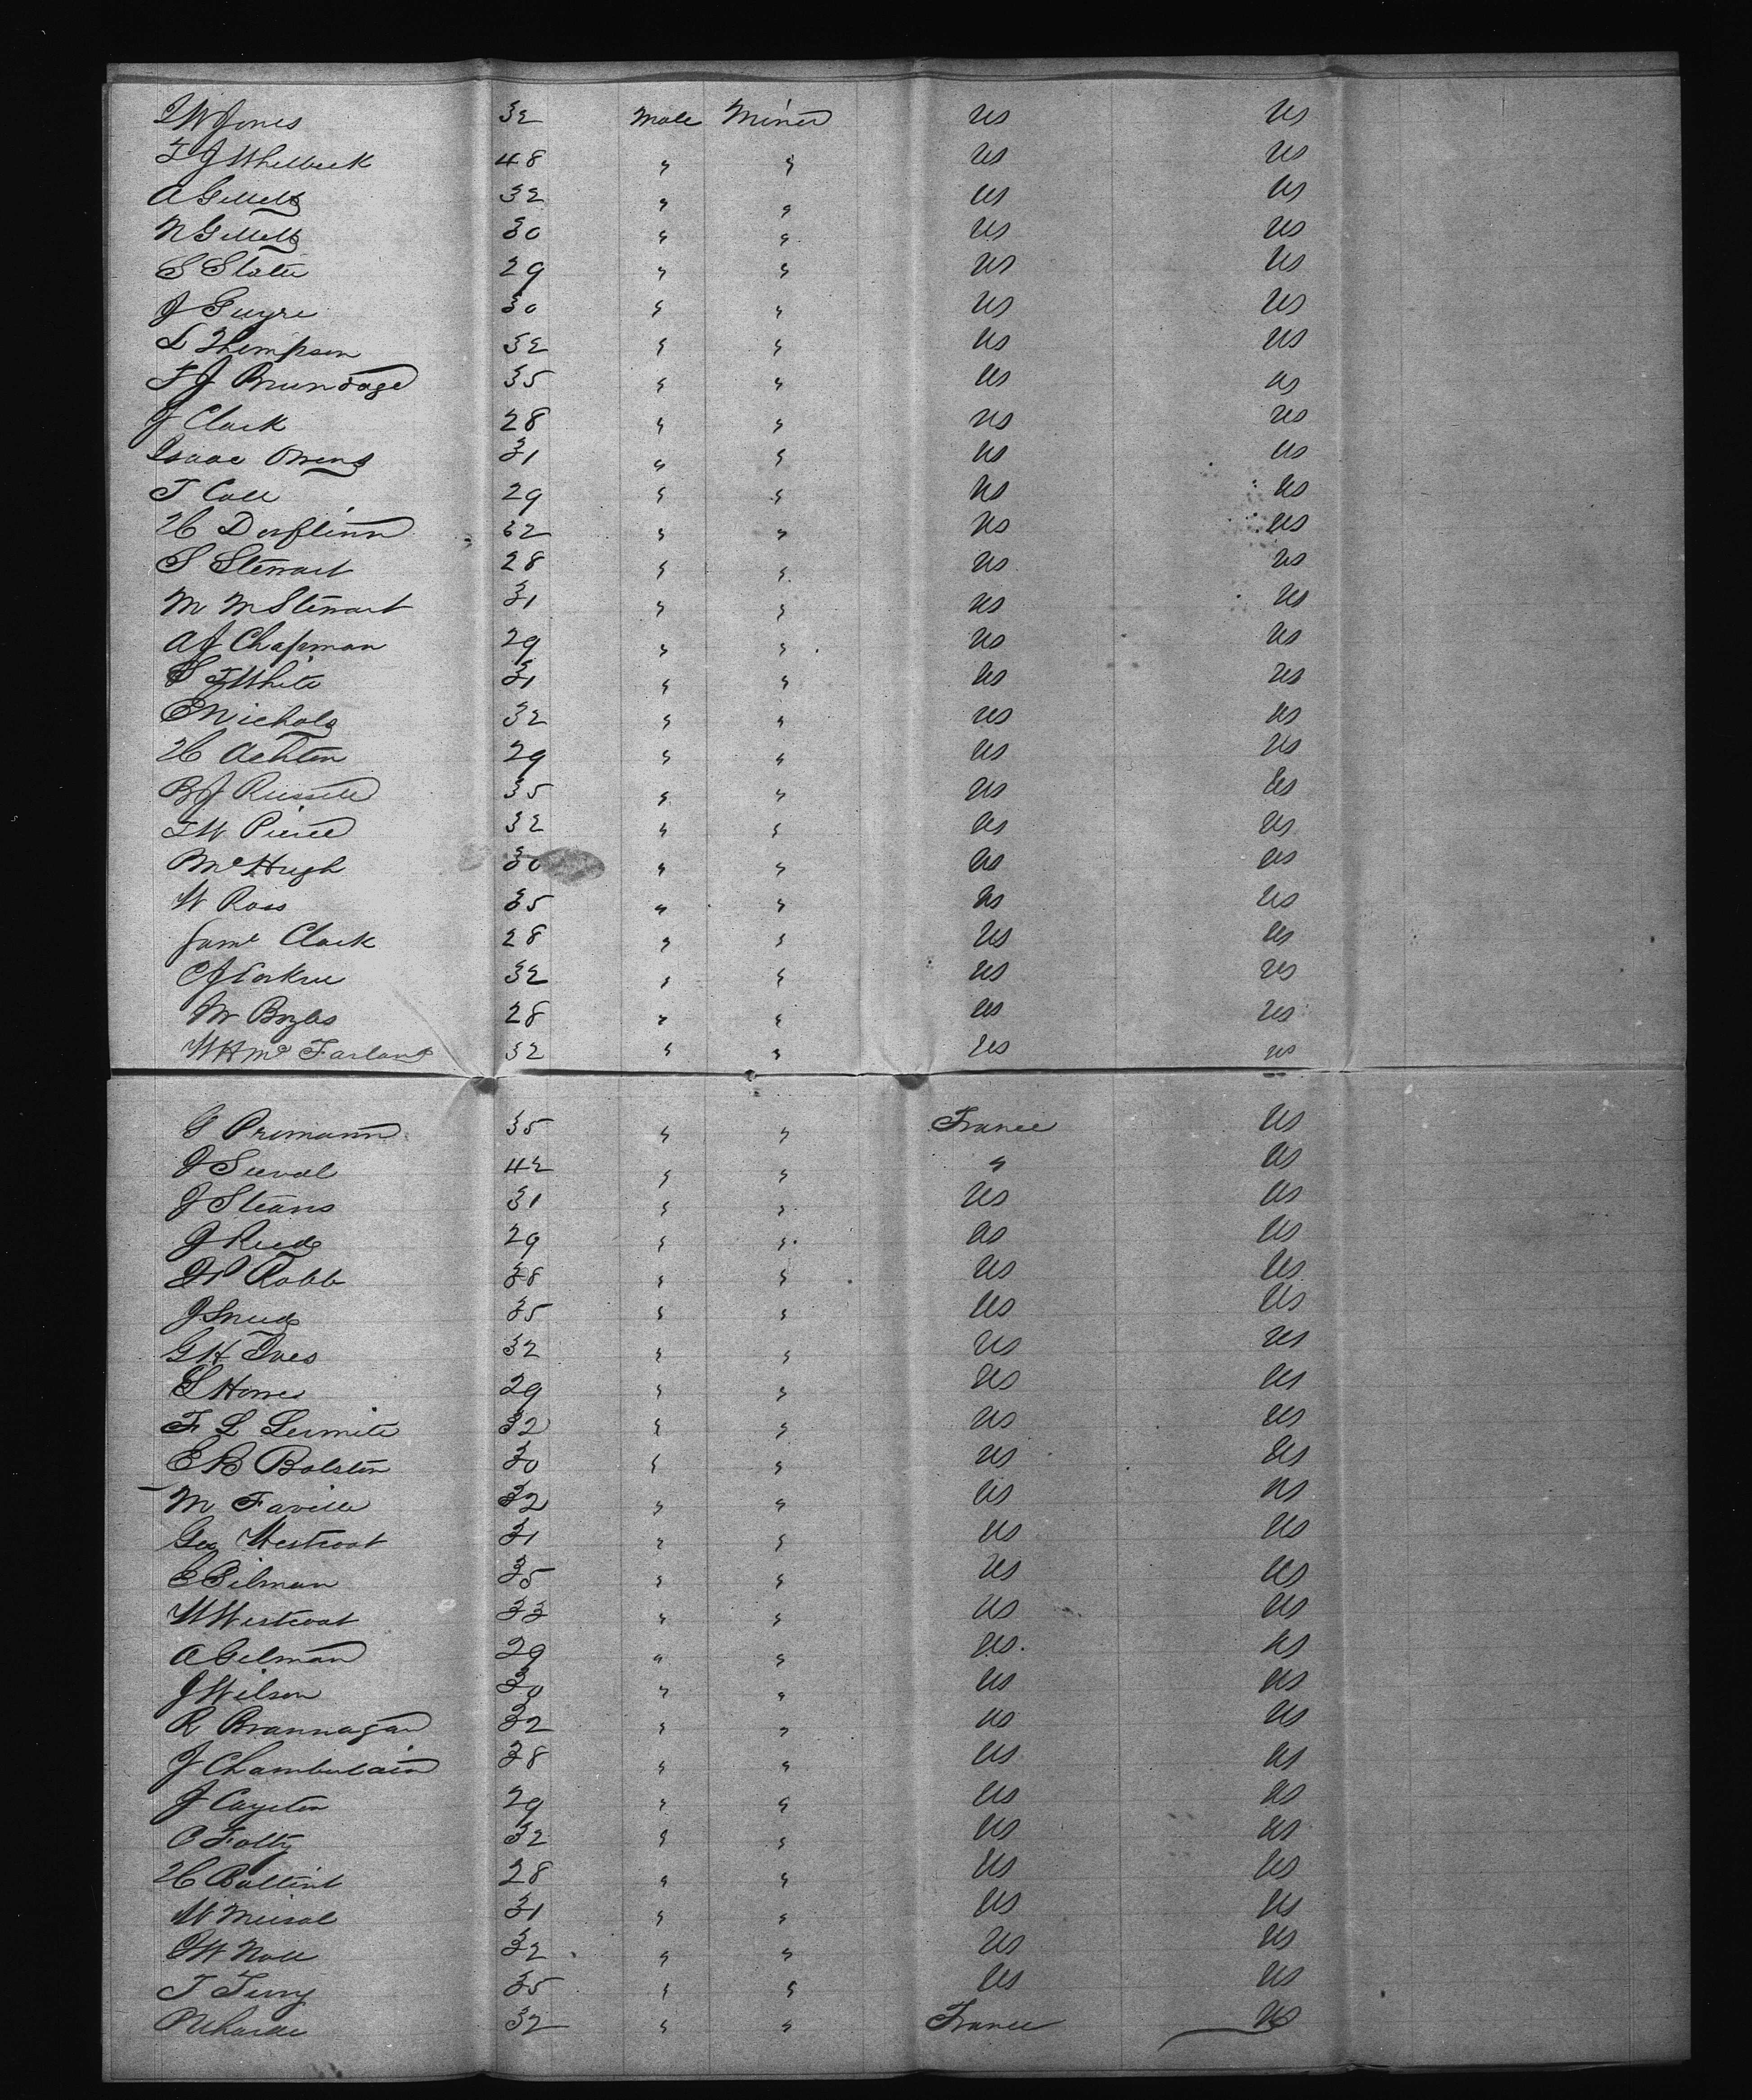 J W Jones 32 Male Miner US US
T J Whelbeck 48 " " US US
A Gillett 32 " " US US
N Gillett 30 " " US US
S Slater 29 " " US US
J Guyre 30 " " US US
L Thompson 32 " " US US
F J Brundage 35 " " US US
J Clark 28 " " US US
Isaac Owens 31 " " US US
T Cole 29 " " US US
H Dorflinn 32 " " US US
S Stewart 28 " " US US
M M Stewart 31 " " US US
A J Chapman 29 " " US US
S F White 31 " " US US
E Nichols 32 " " US US
H Ashton 29 " " US US
B J Russell 35 " " US US
T W Pierce 32 " " US US
McHugh 30 " " US US
W Ross 35 " " US US
James Clark 28 " " US US
C J Corkree 32 " " US US
W Boyles 28 " " US US
W H McFarland 32 " " US US
G Promann 35 " " France US
J Seeval 42 " " " US
J Steans 31 " " US US
J Reed 29 " " US US
Robb 38 " " US US
J Sneed 35 " " US US
G H Ives 32 " " US US
S Homes 29 " " US US
F L Lermite 32 " " US US
E B Bolsten 30 " " US US
M Faville 32 " " US US
Geo Westcoat 31 " " US US
E Gilman 35 " " US US
W Westcoat 33 " " US US
A Gilman 29 " " US US
J Wilson 30 " " US US
R Brannagan 32 " " US US
J Chamberlain 38 " " US US
J Cayston 29 " " US US
C Folty 32 " " US US
H Baltint 28 " " US US
W Meisol 31 " " US US
J W Noll 32 " " US US
T Terry 35 " " US US
32 " " France US